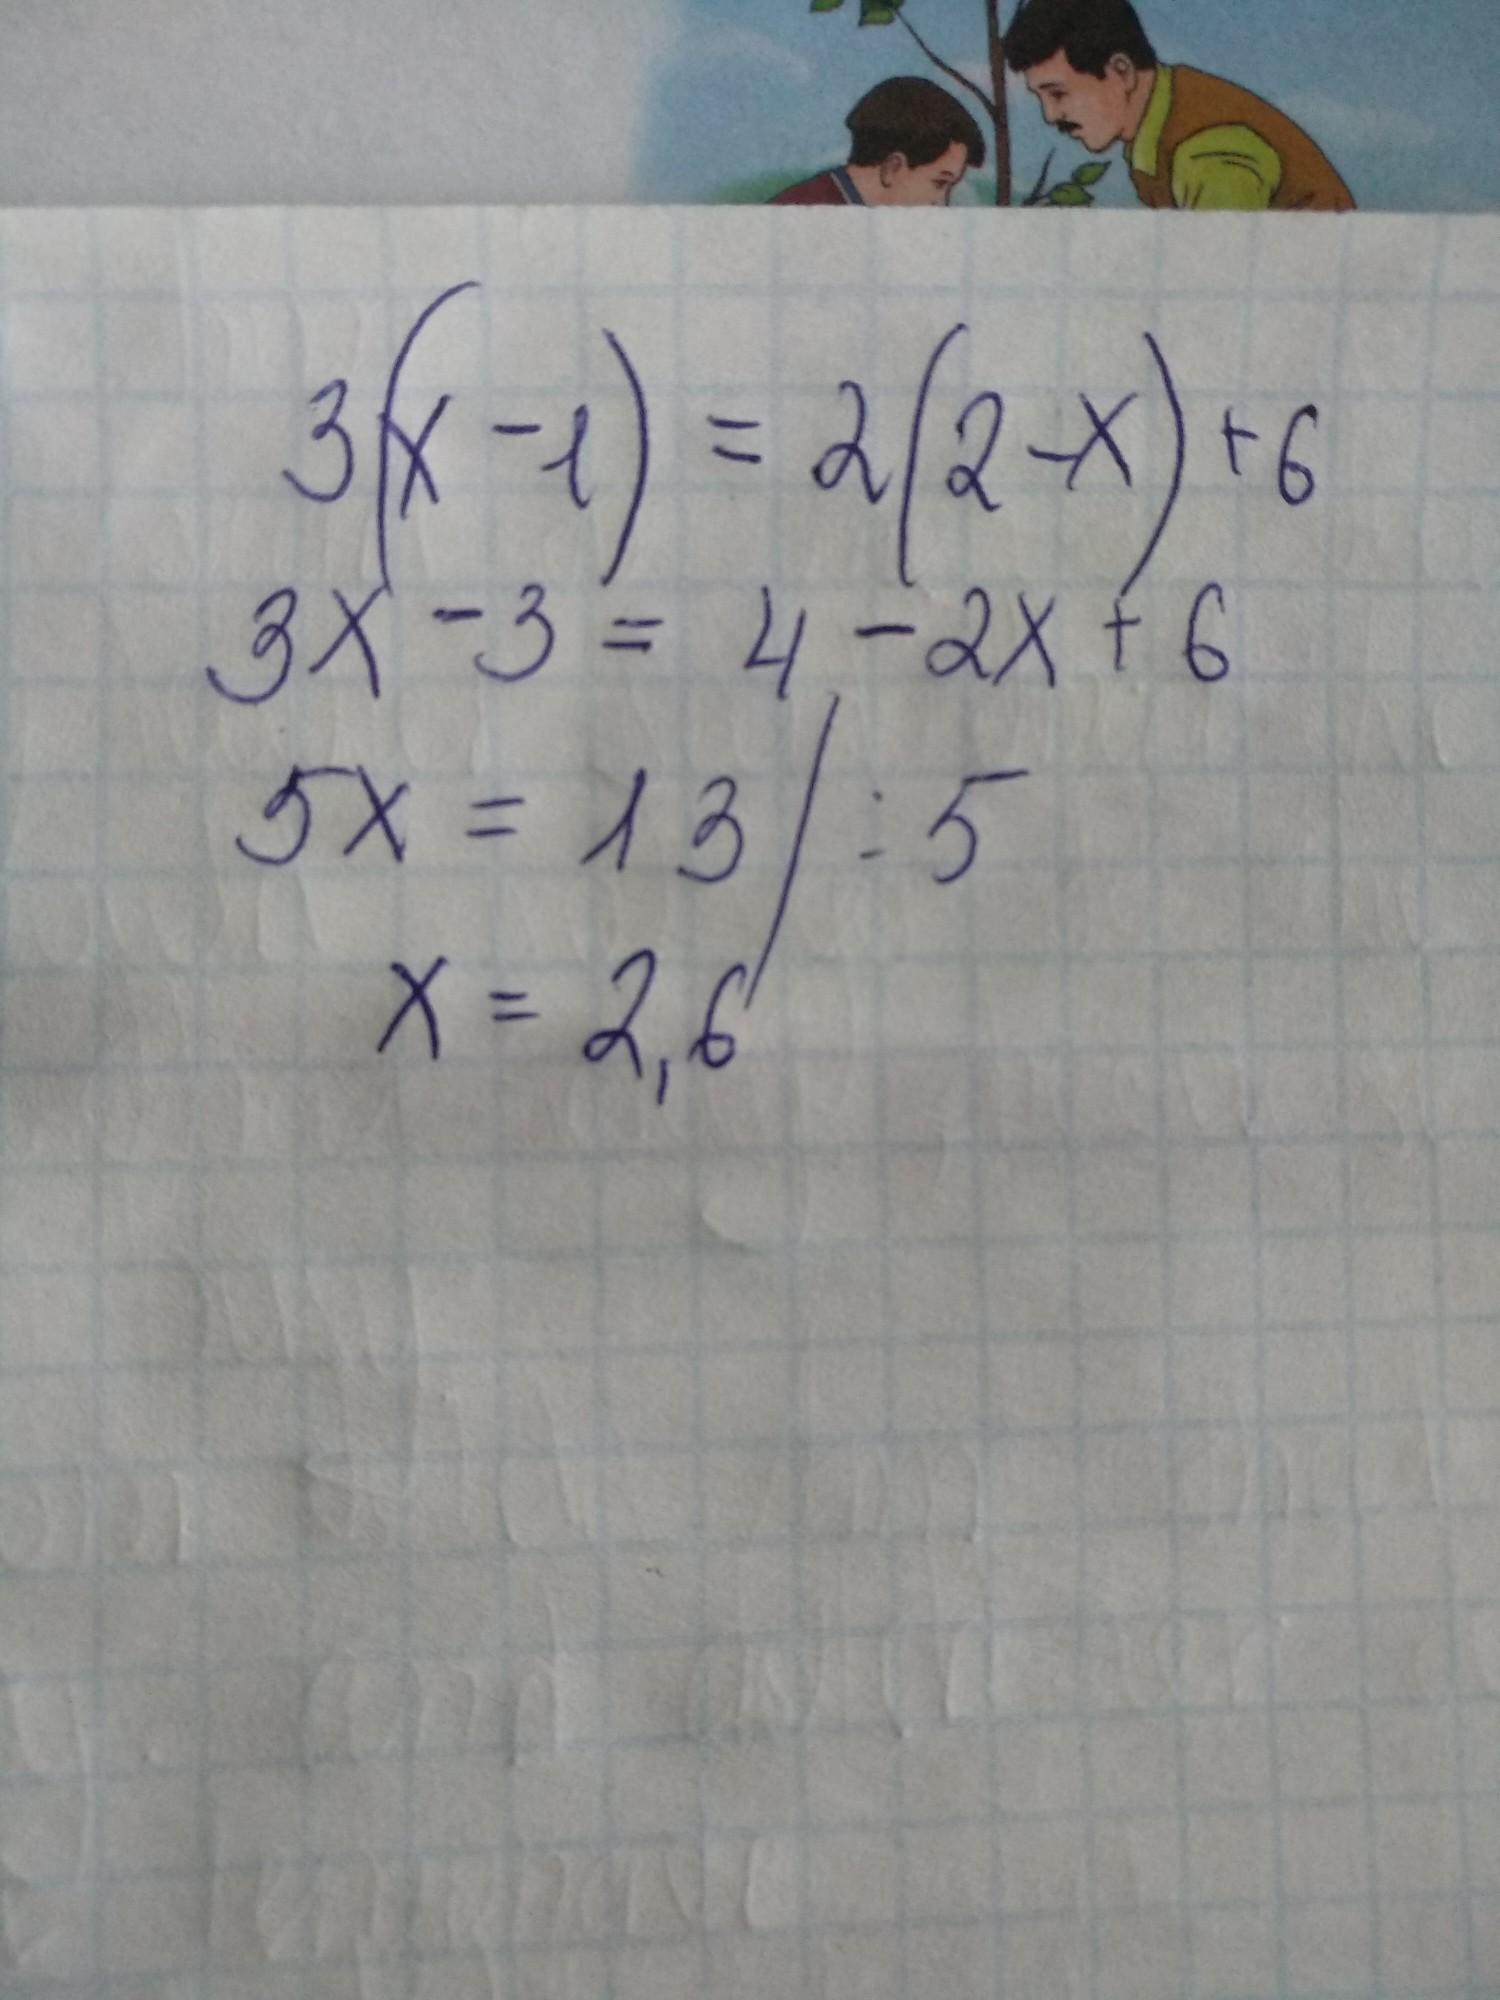 3(x-1) = 2(2-x)+6
3x-3 = 4-2x+6
5x = 13 / :5
x = 2,6